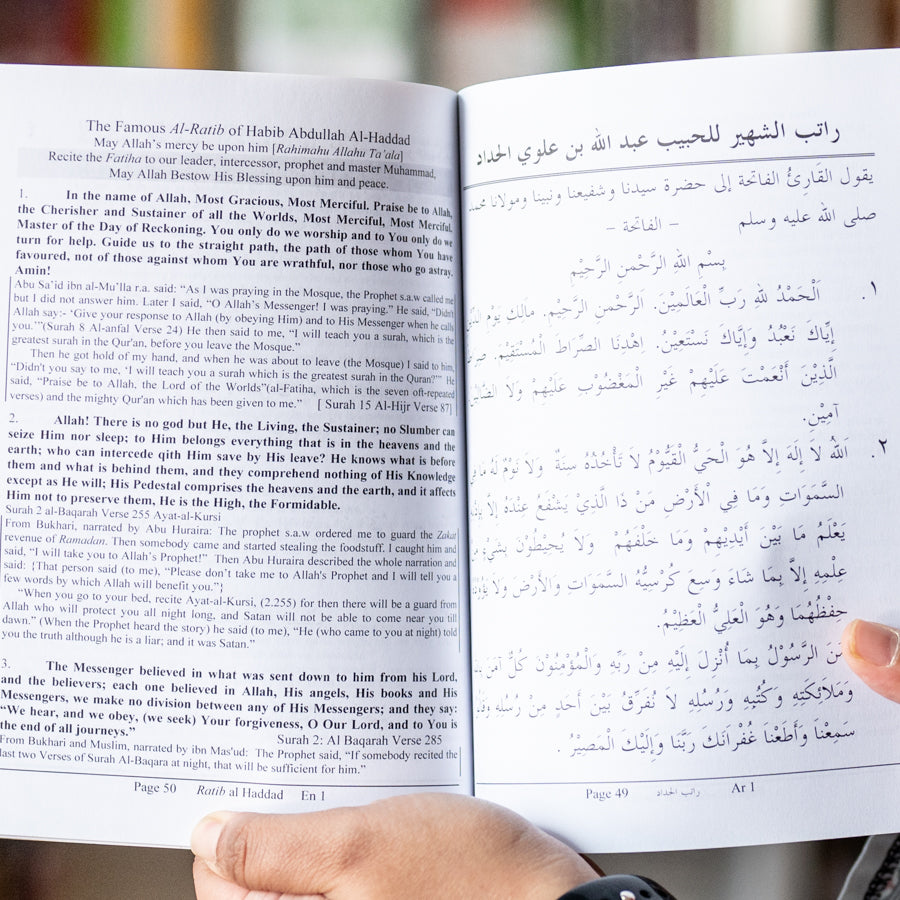 The Famous Al-Ratib of Habib Abdullah Al-Haddad
May Allah's mercy be upon him [Rahimahu Allahu Ta'ala]
Recite the Fatiha to our leader, intercessor, prophet and master Muhammad,
May Allah Bestow His Blessing upon him and peace.
1. In the name of Allah, Most Gracious, Most Merciful. Praise be to Allah,
the Cherisher and Sustainer of all the Worlds, Most Merciful, Most Merciful,
Master of the Day of Reckoning. You only do we worship and to You only do we
turn for help. Guide us to the straight path, the path of those whom You have
favoured, not of against whom You are wrathful, nor those who go astray.
Amin!
Abu Sa'id ibn al-Mu'lla r.a. said: “As I was praying in the Mosque, the Prophet s.a.w called me
but I did not answer him. Later I said, “O Allah's Messenger! I was praying.” He said, “Didn't
Allah say:- ‘Give your response to Allah (by obeying Him) and to His Messenger when he calls
you.’”(Surah 8 Al-anfal Verse 24) He then said to me, “I will teach you a surah, which is the
greatest surah in the Qur'an, before you leave the Mosque.”
Then he got hold of my hand, and when he was about to leave (the Mosque) I said to him,
“Didn't you say to me, ‘I will teach you a surah which is the greatest surah in the Quran?’” He
said, “Praise be to Allah, the Lord of the Worlds”(al-Fatiha, which is the seven oft-repeated
verses) and the mighty Qur'an which has been given to me.” [ Surah 15 Al-Hijr Verse 87]
2. Allah! There is no god but He, the Living, the Sustainer; no Slumber can
seize Him nor sleep; to Him belongs everything that is in the heavens and the
earth; who can intercede qith Him save by His leave? He knows what is before
them and what is behind them, and they comprehend nothing of His Knowledge
except as He will; His Pedestal comprises the heavens and the earth, and it affects
Him not to preserve them, He is the High, the Formidable.
Surah 2 al-Baqarah Verse 255 Ayat-al-Kursi
From Bukhari, narrated by Abu Huraira: The prophet s.a.w ordered me to guard the Zakat
revenue of Ramadan. Then somebody came and started stealing the foodstuff. I caught him and
said, “I will take you to Allah's Prophet!” Then Abu Huraira described the whole narration and
said: {That person said (to me), “Please don't take me to Allah's Prophet and I will tell you a
few words by which Allah will benefit you.”;
“When you go to your bed, recite Ayat-al-Kursi, (2.255) for then there will be a guard from
Allah who will protect you all night long, and Satan will not be able to come near you till
dawn.” (When the Prophet heard the story) he said (to me), “He (who came to you at night) told
you the truth although he is a liar; and it was Satan.”
3. The Messenger believed in what was sent down to him from his Lord,
and the believers; each one believed in Allah, His angels, His Books and His
Messengers, we make no division between any of His Messengers; and they say:
“We hear, and we obey, (we seek) Your forgiveness, O Our Lord, and to You is
the end of all journeys.” Surah 2: Al Baqarah Verse 285
From Bukhari and Muslim, narrated by ibn Mas'ud: The Prophet said, “If somebody recited the
last two Verses of Surah Al-Baqara at night, that will be sufficient for him.”
Page 50 Ratib al Haddad En 1
راتب الشهير للحبيب عبد الله بن علوي الحداد
يقول القَارِئُ الفاتحة إلى حضرة سيدنا وشفيعنا ونبينا ومولانا محمد
صلى الله عليه وسلم – الفاتحة –
بِسْمِ اللهِ الرَّحْمنِ الرَّحِيْمِ
١. اَلْحَمْدُ للهِ رَبِّ الْعَالَمِيْنَ. الرَّحْمنِ الرَّحِيْمِ. مالِكِ يَوْمِ
إِيِّاكَ نَعْبُدُ وَإِيَّاكَ نَسْتَعِيْنُ. اِهْدِنَا الصِّرَاطَ الْمُسْتَقِيْمَ.
الَّذِيْنَ أَنْعَمْتَ عَلَيْهِمْ غَيْرِ الْمَغْضُوْبِ عَلَيْهِمْ وَلاَ
آمِيْنِ.
٢. اَللهُ لاَ إِلهَ إِلاَّ هُوَ الْحَيُّ الْقَيُّوْمُ لاَ تَأْخُذُهُ سِنَةٌ وَلاَ نَوْمٌ لَهُ مَا فِي
السَّمَوَاتِ وَمَا فِي الْأَرْضِ مَنْ ذَا الَّذِيْ يَشْفَعُ عِنْدَهُ إِلاَّ
يَعْلَمُ مَا بَيْنَ أَيْدِيْهِمْ وَمَا خَلْفَهُمْ وَلاَ يُحِيْطُوْنَ بِشَيْءٍ
عِلْمِهِ إِلاَّ بِمَا شَاءَ وَسِعَ كُرْسِيُّهُ السَّمَوَاتِ وَالأَرْضَ وَلاَ
حِفْظُهُمَا وَهُوَ الْعَلِيُّ الْعَظِيْمُ.
الرَّسُوْلُ بِمَا أُنْزِلَ إِلَيْهِ مِنْ رَبِّهِ وَالْمُؤْمِنُوْنَ كُلٌّ آمَنَ
وَمَلاَئِكَتِهِ وَكُتُبِهِ وَرُسُلِهِ لاَ نُفَرِّقُ بَيْنَ أَحَدٍ مِنْ رُسُلِهِ
سَمِعْنَا وَأَطَعْنَا غُفْرَانَكَ رَبَّنَا وَإِلَيْكَ الْمَصِيْرُ.
Page 49 راتب الحداد Ar 1